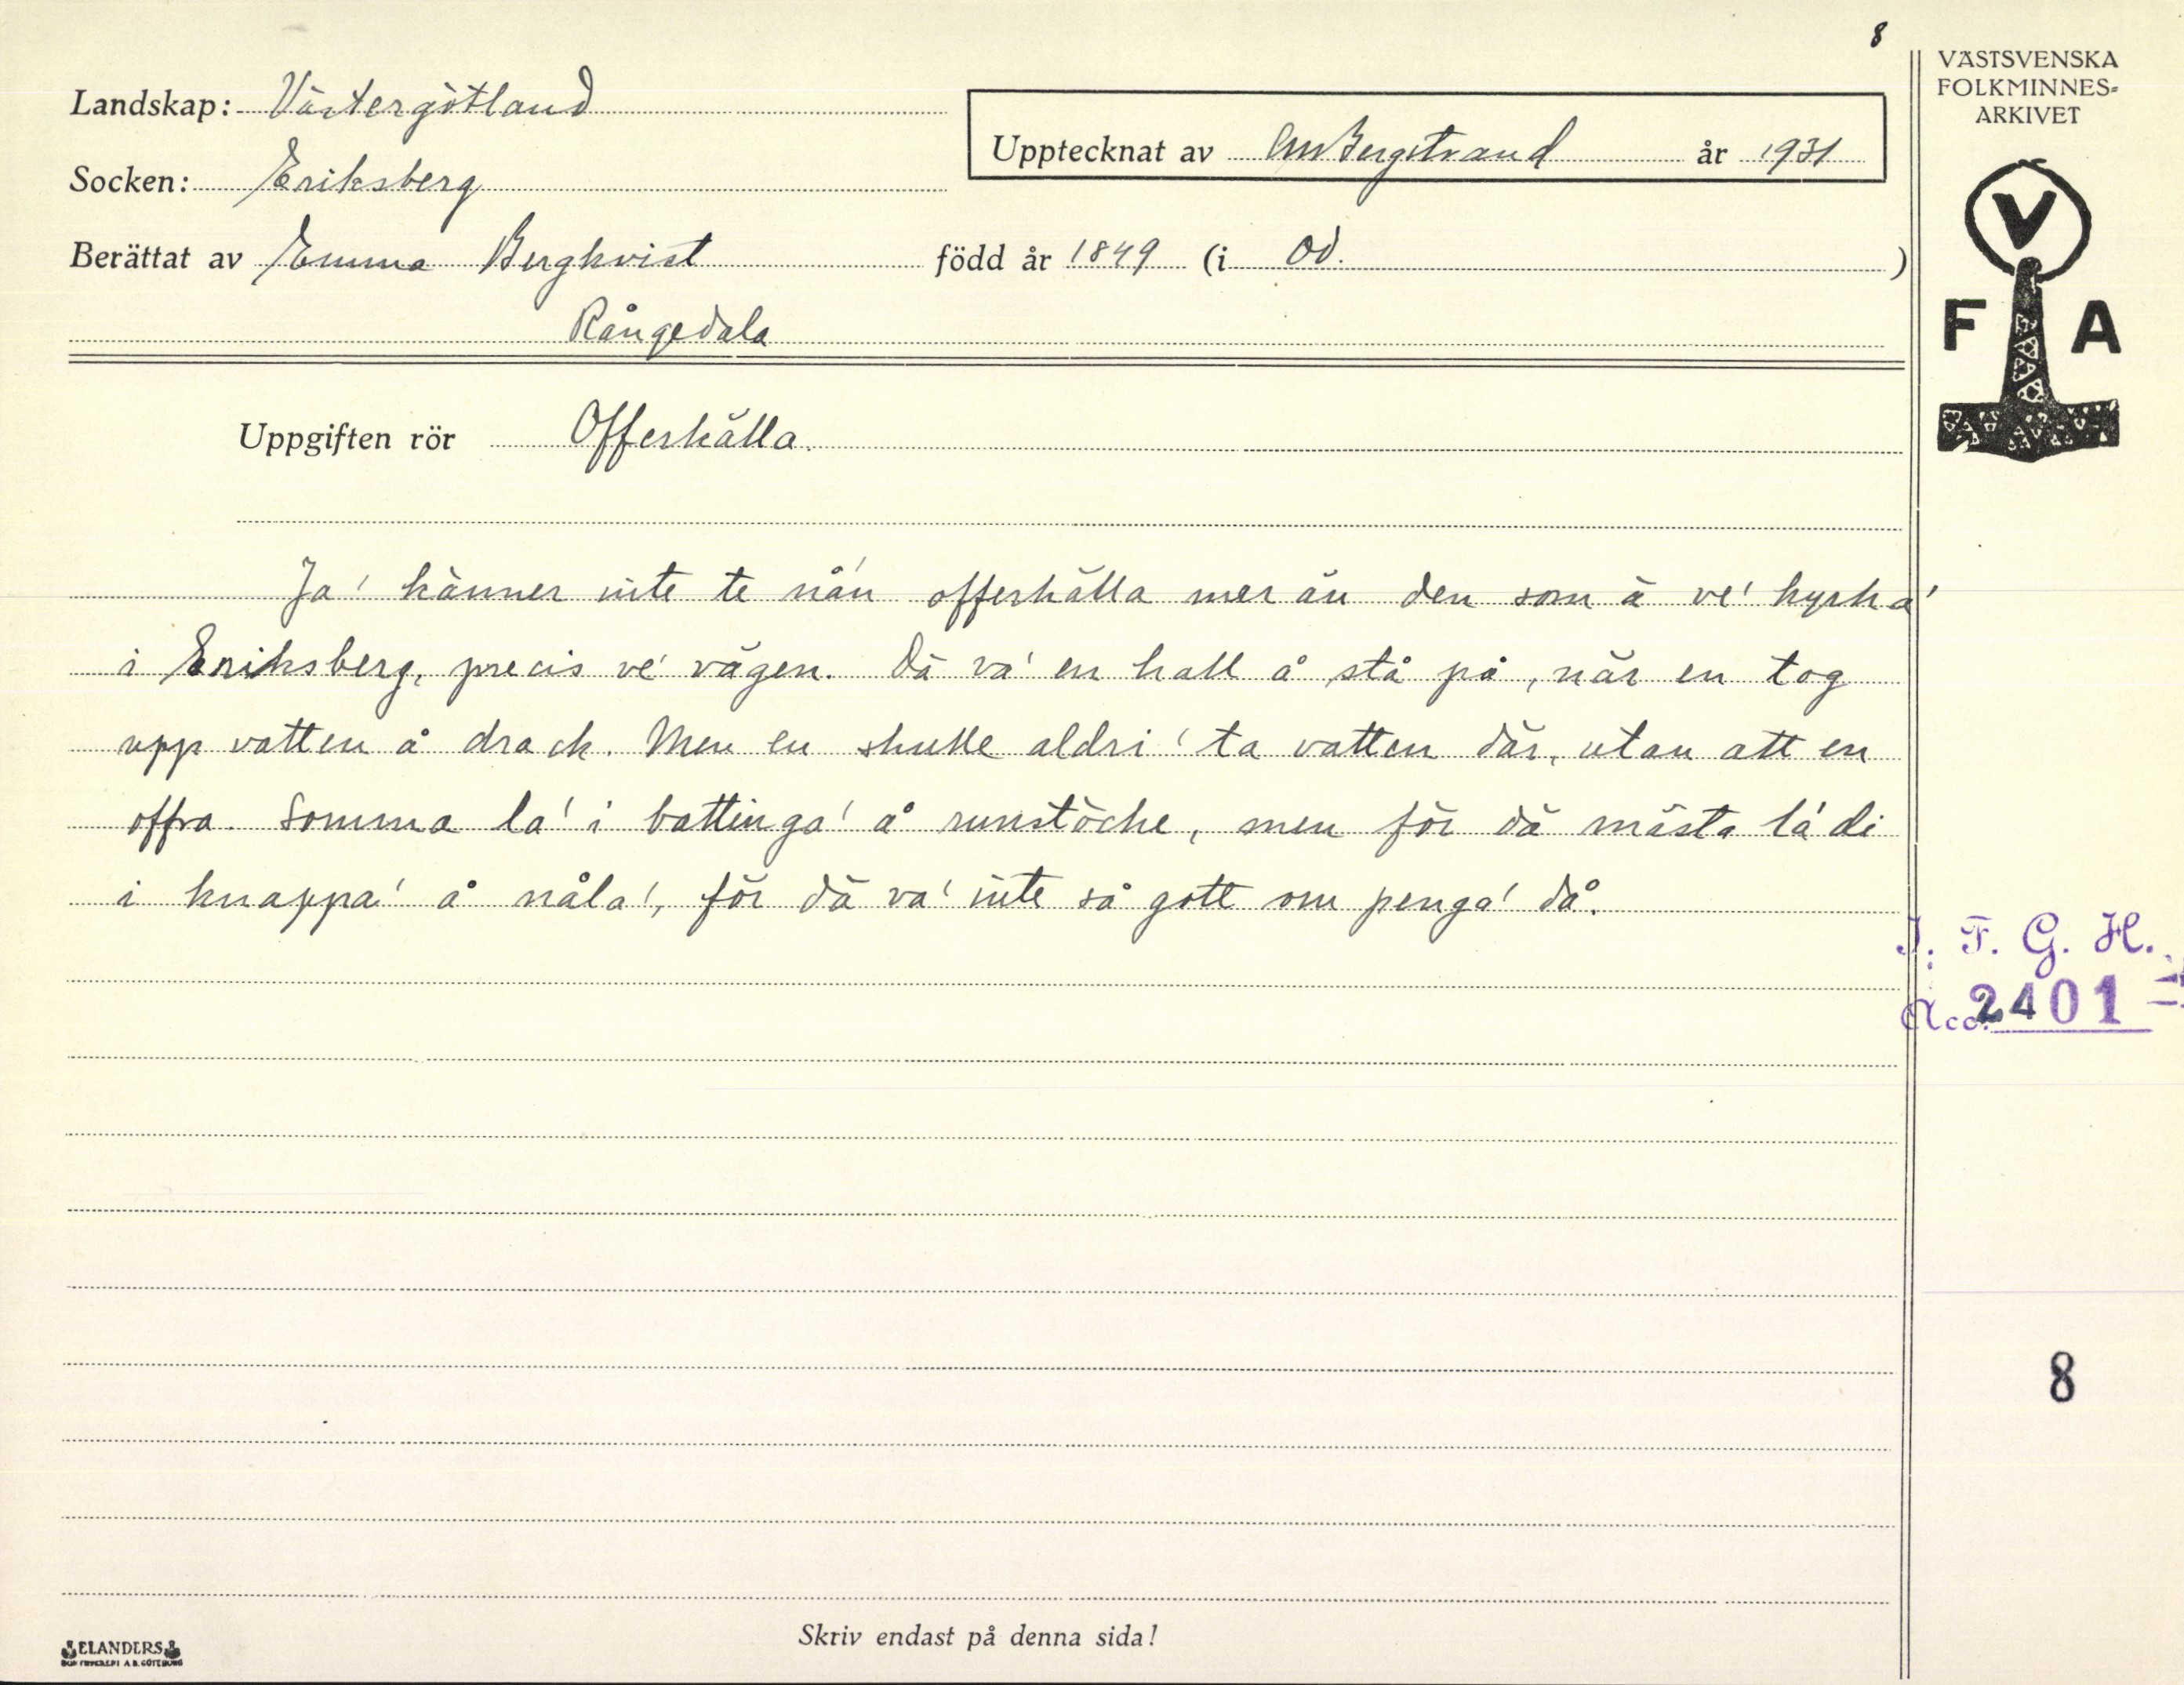 8
Landskap: Västergötland
Socken: Eriksberg
Upptecknat av CM Bergstrand år 1931
Berättat av Emma Bergkvist född år 1849 (i Od. )
Rångedala
Uppgiften rör Offerkälla.
Ja' känner inte te nå'n offerkälla mer än den som ä ve' kyrka'
i Eriksberg, precis ve' vägen. Dä va' en hall å stå på, när en tog
upp vatten å drack. Men en skulle aldri' ta vatten där, utan att en
offra. Somma la' i battinga' å runstöcke, men för dä mästa la' di
i knappa' å nåla', för dä va' inte så gott om penga' då.
VÄSTSVENSKA
FOLKMINNES-
ARKIVET
V
F A
I. F. G. H.
Acc. 2401
8
Skriv endast på denna sida!
ELANDERS
BOKTRYCKERI A.B. GÖTEBORG